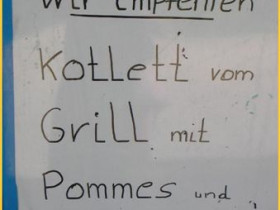 Wir Empfehlen
Kotlett vom
Grill mit
Pommes und